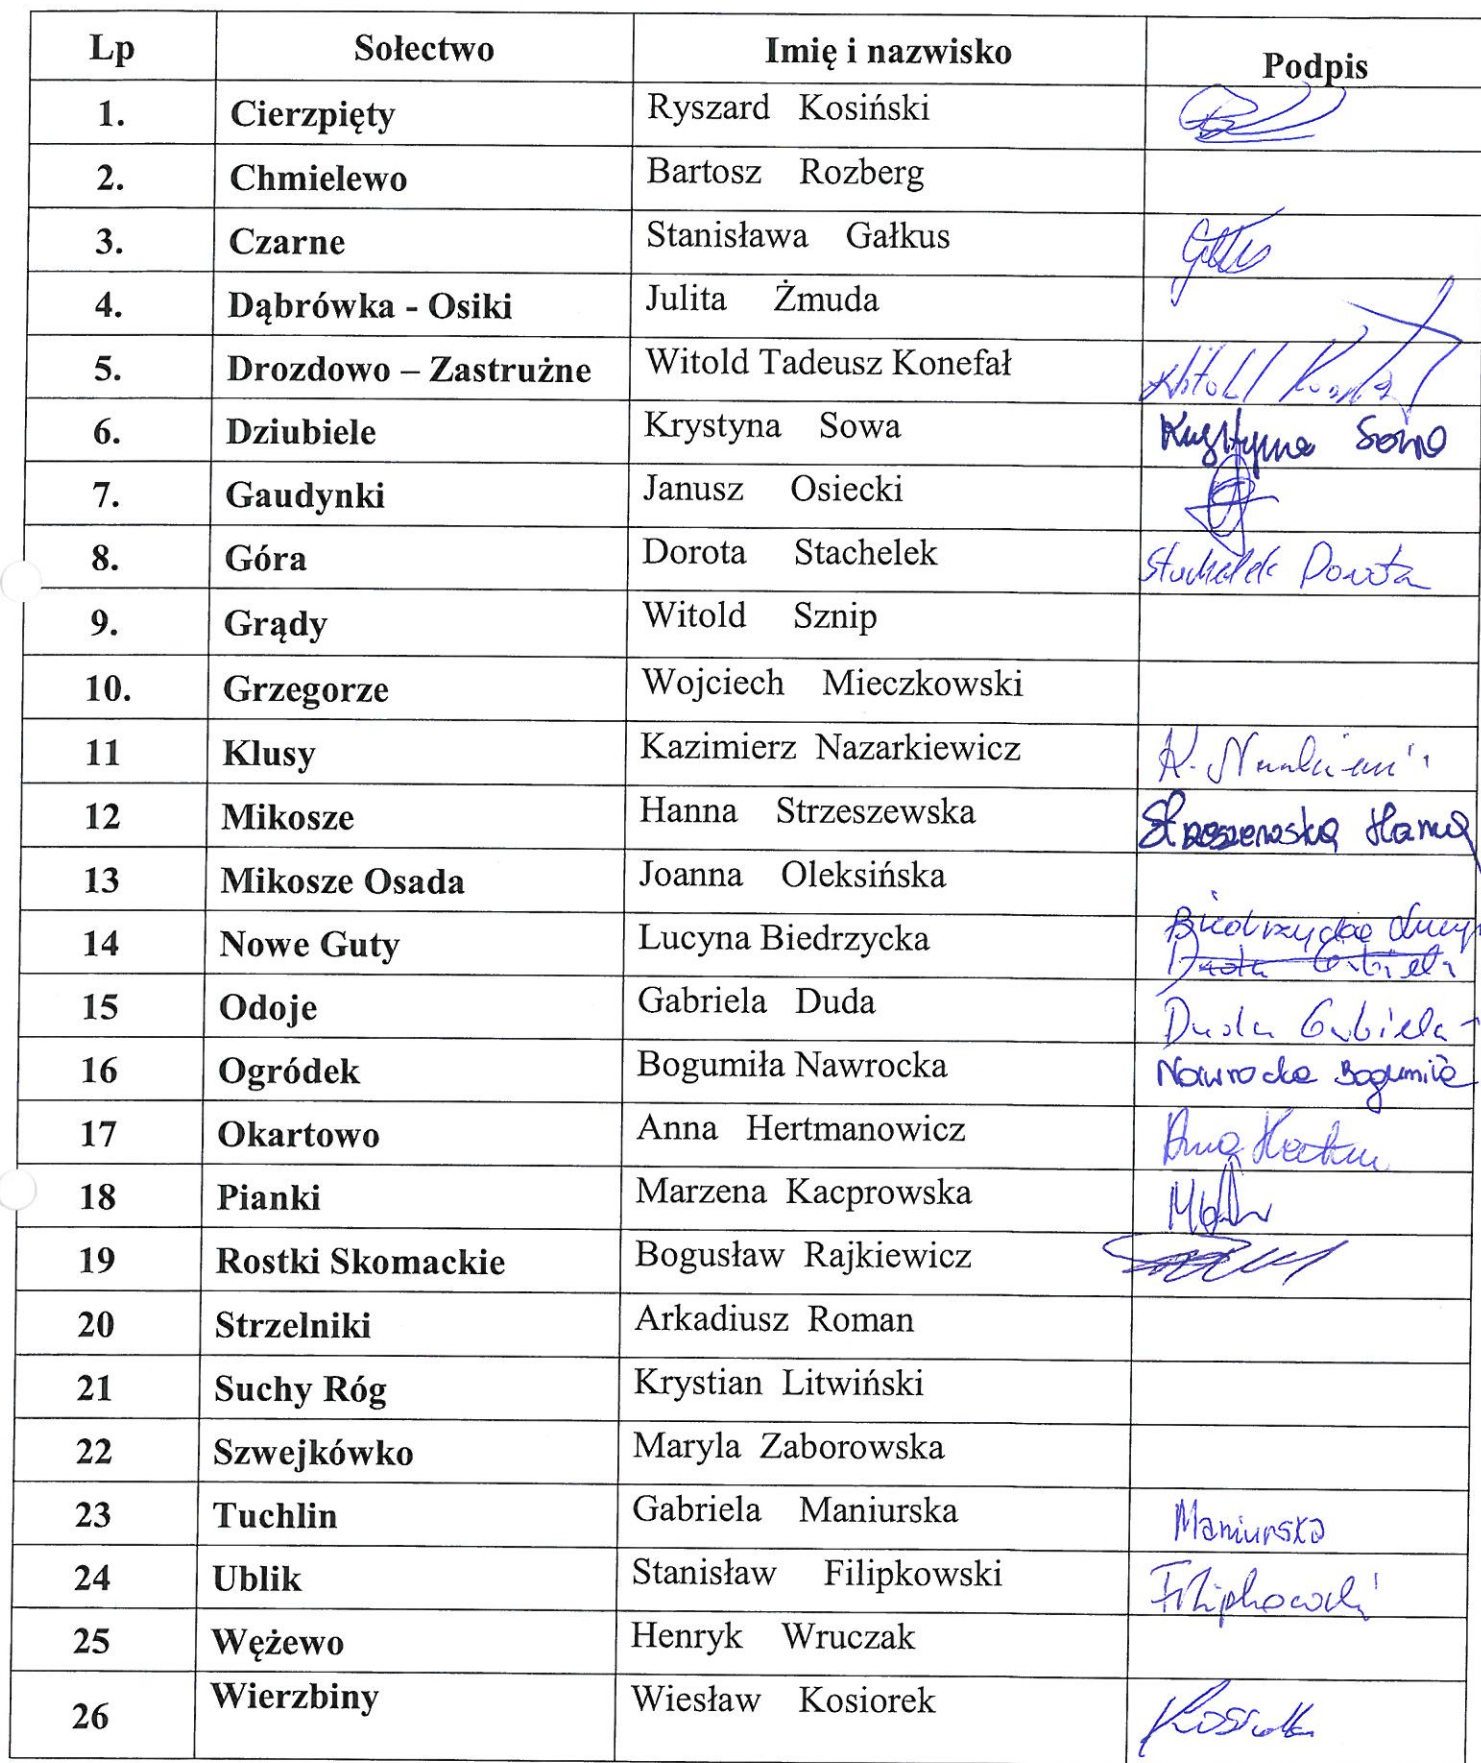 Lp Sołectwo Imię i nazwisko Podpis
1. Cierzpięty Ryszard Kosiński
2. Chmielewo Bartosz Rozberg
3. Czarne Stanisława Gałkus
4. Dąbrówka - Osiki Julita Żmuda
5. Drozdowo – Zastrużne Witold Tadeusz Konefał Witold
6. Dziubiele Krystyna Sowa Krystyna Sowa
7. Gaudynki Janusz Osiecki
8. Góra Dorota Stachelek Stachelek Dorota
9. Grądy Witold Sznip
10. Grzegorze Wojciech Mieczkowski
11 Klusy Kazimierz Nazarkiewicz K.
12 Mikosze Hanna Strzeszewska Strzeszewska Hanna
13 Mikosze Osada Joanna Oleksińska
14 Nowe Guty Lucyna Biedrzycka Biedrzycka Lucyn
15 Odoje Gabriela Duda Duda Gabriela
16 Ogródek Bogumiła Nawrocka Nawrocka Bogumiła
17 Okartowo Anna Hertmanowicz Anna
18 Pianki Marzena Kacprowska
19 Rostki Skomackie Bogusław Rajkiewicz
20 Strzelniki Arkadiusz Roman
21 Suchy Róg Krystian Litwiński
22 Szwejkówko Maryla Zaborowska
23 Tuchlin Gabriela Maniurska Maniurska
24 Ublik Stanisław Filipkowski Filipkowski
25 Wężewo Henryk Wruczak
26 Wierzbiny Wiesław Kosiorek